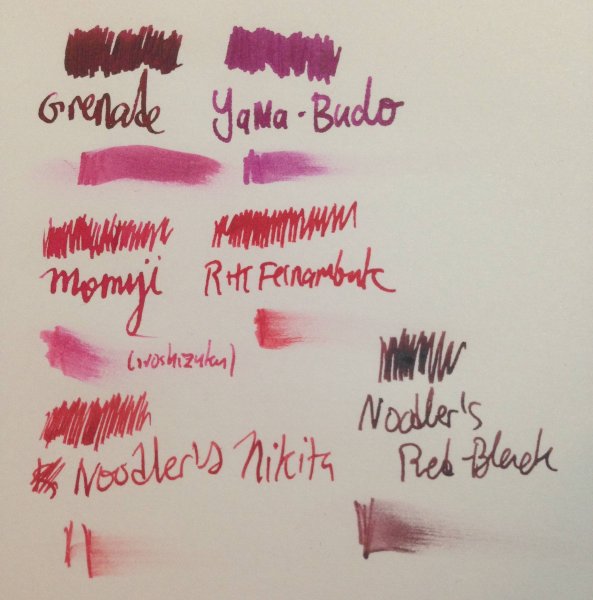 Grenade
Yama-Budo
Momiji
R+K Fernambuk
(iroshizuku)
Noodler's Nikita
Noodler's
Red-Black